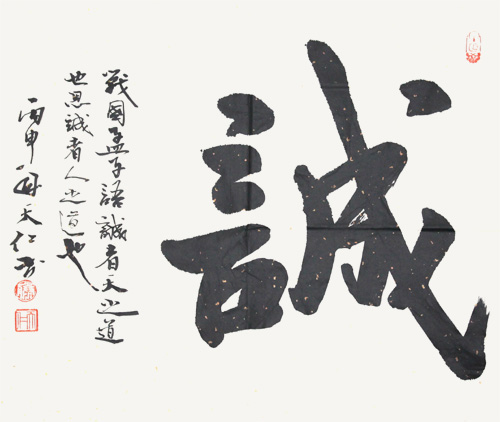 誠
戰國孟子語誠者天之道
也思誠者人之道也
丙申天仁书